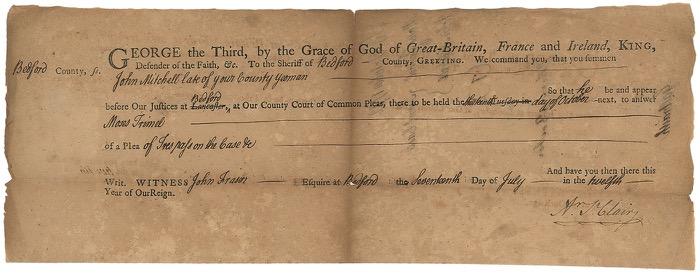 GEORGE the Third, by the Grace of God of Great-Britain, France and Ireland, KING,
Defender of the Faith, &c. To the Sheriff of Bedford County, GREETING. We command you, that you summon
Bedford County, ss.
John Mitchell late of your County Yeoman
So that he be and appear
before Our Justices at Lancaster, Bedford, at Our County Court of Common Pleas, there to be held the day of October next, to answer
Moses Trimel
of a Plea of Trespass on the Case &c
And have you then there this
Writ. WITNESS John Fraser Esquire at Bedford the Seventeenth Day of July in the twelfth
Year of Our Reign.
Ar. St. Clair